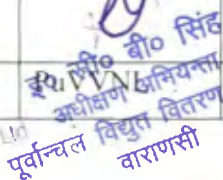 इं० सी० बी० सिंह
PuVVNL
अधीक्षण अभियन्ता
पूर्वान्चल विद्युत वितरण
वाराणसी